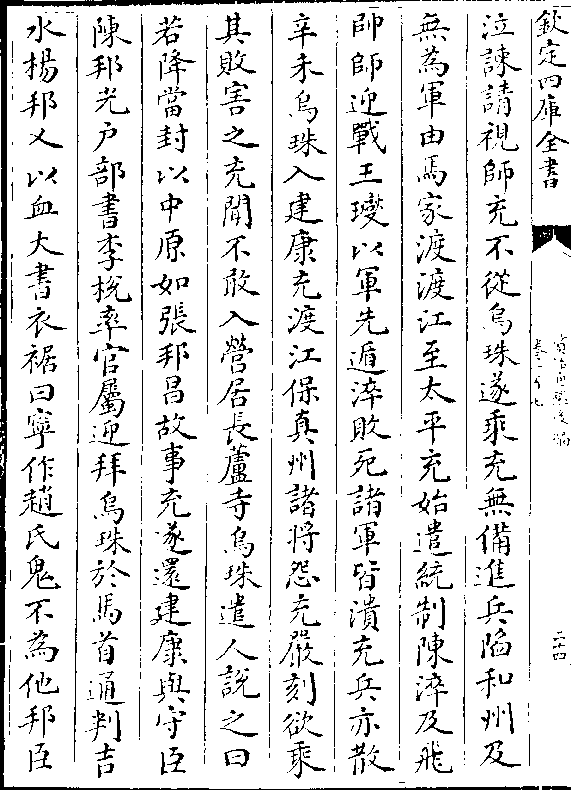 欽定四庫全書
泣諫請視師充不從烏珠遂乘充無備進兵陷和州及
無為軍由馬家渡渡江至太平充始遣統制陳淬及飛
帥師迎戰王𤫉以軍先遁淬敗死諸軍皆潰充兵亦散
辛未烏珠入建康充渡江保真州諸将怨充嚴刻欲乘
其敗害之充聞不敢入營居長蘆寺烏珠遣人說之曰
若降當封以中原如張邦昌故事充遂還建康與守臣
陳邦光户部書李梲率官屬迎拜烏珠於馬首通判吉
水楊邦乂以血大書衣裾曰寧作趙氏鬼不為他邦臣
二十四